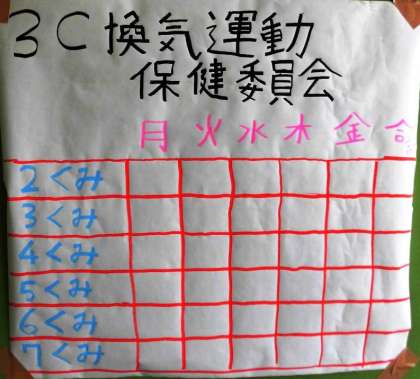 3C換気運動
保健委員会
月火水木金合
2くみ
3くみ
4くみ
5くみ
6くみ
7くみ